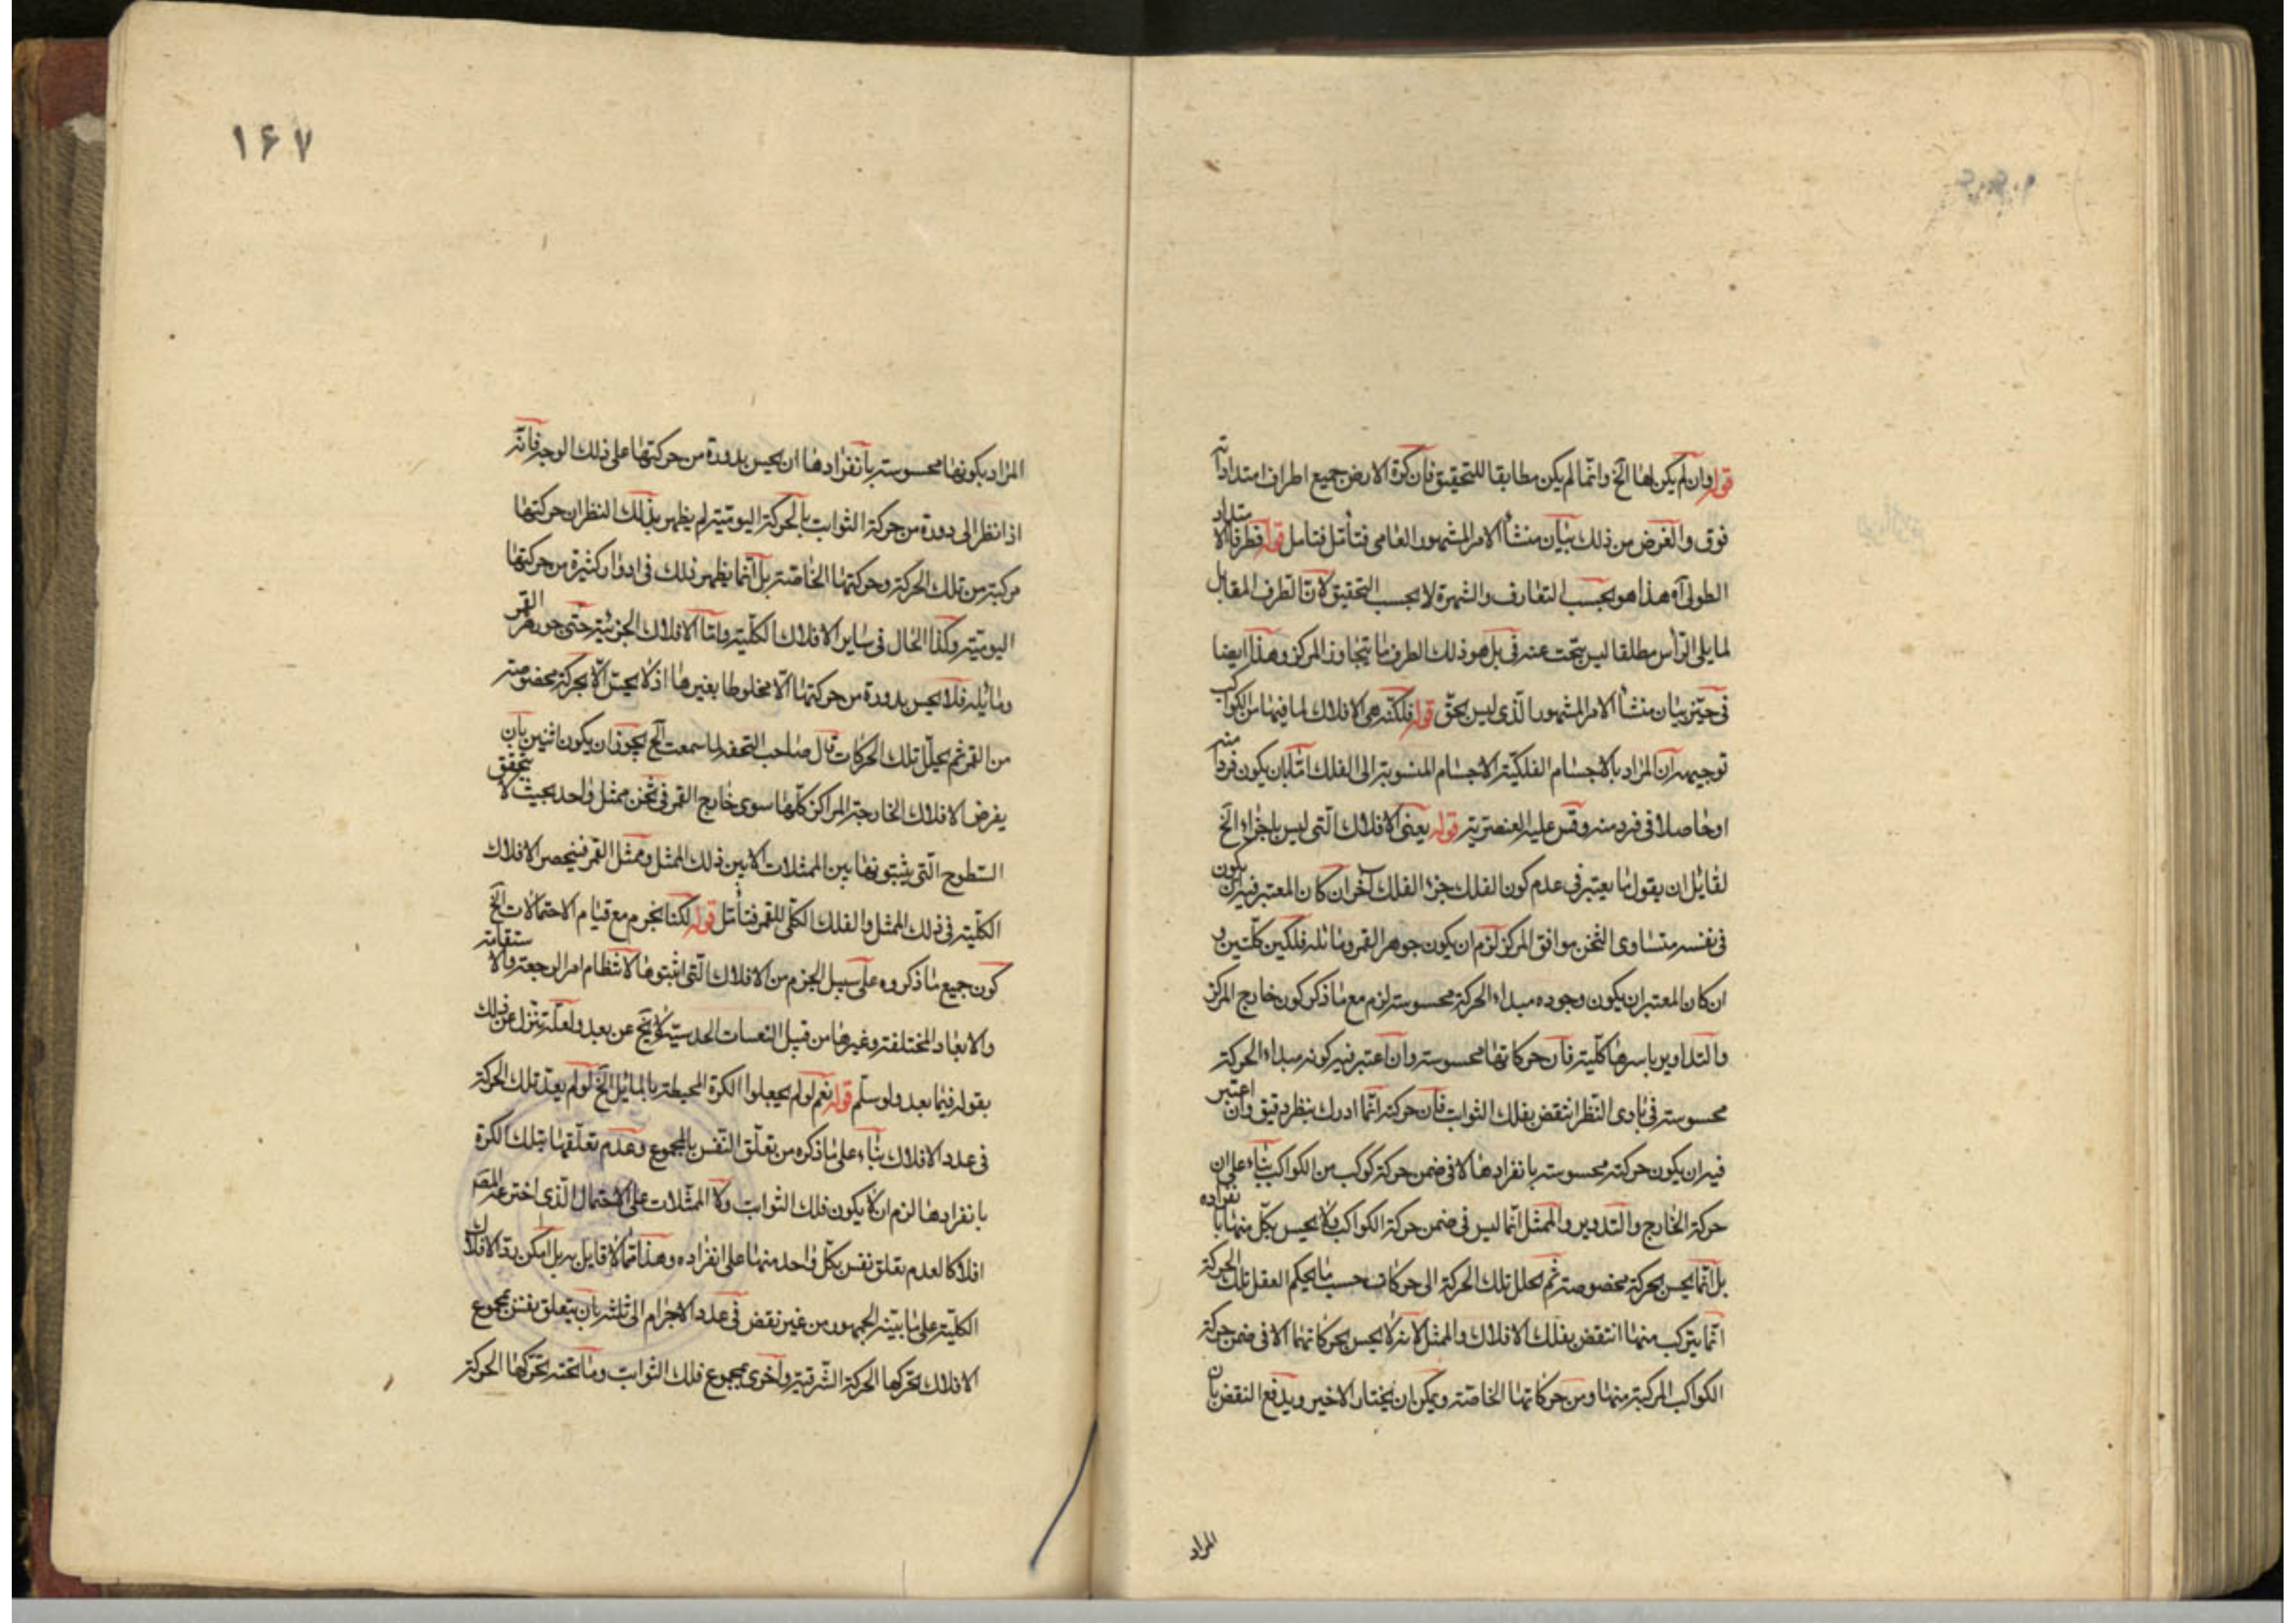 قوله وان لم يكن لها الخ وانما لم يكن مطابقا للتحقيق فان كرة الارض جميع اطراف امتداداته
فوق والغرض من ذلك بيان منشأ الامر المشهور العامى فتأمل فتامل قوله فطرفا الامتداد
الطولى آه هذا هو بحسب التعارف والشهرة لا بحسب التحقيق لان الطرف المقابل
لما يلى الرأس مطلقا ليس بتحت عنه فى بل هو ذلك الطرف ما يتجاوز المركز وهذا ايضا
فى حيز بيان منشأ الامر المشهور الذى ليس بحق قوله فلكنه هى الافلاك لما فيها من الكواكب
توجيهه ان المراد بالاجسام الفلكية الاجسام المنسوبة الى الفلك اما بان يكون فردا منه
او حاصلا فى فرد منه وقس عليه العنصرية قوله يعنى الافلاك التى ليس باجزاء الخ
لقايل ان يقول ما يعتبر فى عدم كون الفلك جزء الفلك آخر ان كان المعتبر فيه ان يكون
فى نفسه متساوى الثخن موافق المركز لزم ان يكون جوهر القمر ومائله فلكين كليين و
ان كان المعتبر ان يكون وجوده مبداء الحركة محسوسة لزم مع ما ذكر كون خارج المركز
والتداوير باسرها كلية فان حركاتها محسوسة وان اعتبر فيه كونه مبداء الحركة
محسوسة فى بادى النظر انتقض بفلك الثوابت فان حركته انما ادرك بنظر دقيق وان اعتبر
فيه ان يكون حركته محسوسة بانفرادها لا فى ضمن حركة كوكب من الكواكب بناء على ان
حركة الخارج والتدوير والممثل انما ليس فى ضمن حركة الكواكب ولا يحس بكل منها بانفراده
بل انما يحس بحركة مخصوصة ثم تحلل تلك الحركة الى حركات حسب ما يحكم العقل تلك الحركة
انما يتركب منها انتقض بفلك الافلاك والممثل لانه لا يحس بحركاتهما الا فى ضمن حركة
الكواكب المركبة منها ومن حركاتها الخاصة ويمكن ان يختار الاخير ويدفع النقض بان
المراد
١٤٧
المراد بكونها محسوسة بانفرادها ان يحس بدورة من حركتها على ذلك الوجه فانه
اذا نظر الى دورة من حركة الثوابت بالحركة اليومية لم يظهر بذلك النظر ان حركتها
مركبة من تلك الحركة وحركتها الخاصة بل انما يظهر ذلك فى ادوار كثيرة من حركتها
اليومية وكذا الحال فى ساير الافلاك الكلية واما الافلاك الجزئية حتى جوزهر القمر
ومائله فلا يحس بدورة من حركتها الا مخلوطا بغيرها اذ لا يحس الا بحركة مخصوصة
من القمر ثم يحلل تلك الحركات قال صاحب التحفه لما سمعت الخ يجوز ان يكون اثنين بان
يفرض الافلاك الخارجة المراكز كلها سوى خارج القمر فى ثخن ممثل واحد بحيث لا يتحقق
السطوح التى يثبتونها بين الممثلات الا بين ذلك الممثل وممثل القمر فينحصر الافلاك
الكلية فى ذلك الممثل والفلك الكلى للقمر فتأمل قوله لكنا نجزم مع قيام الاحتمالات الخ
كون جميع ما ذكروه على سبيل الجزم من الافلاك التى اثبتوها لانتظام امر الرجعة والاستقامة
والابعاد المختلفة وغيرها من قبيل الحدسية لا يخ عن بعد ولعله تنزل عن ذلك
بقوله فيما بعد ولو سلم قوله نعم لو لم يجعلوا الكرة المحيطة بالمايل الخ لو لم يعد تلك الحركة
فى عدد الافلاك بناء على ما ذكره من تعلق النفس بالمجموع وعدم تعلقها بتلك الكرة
بانفرادها لزم ان لا يكون فلك الثوابت ولا الممثلات على الاحتمال الذى اخترعه المصر
افلاكا لعدم تعلق نفس بكل واحد منها على انفراده وهذا مما لا قايل به بل امكن رد الافلاك
الكلية على ما بينه الجمهور من غير نقض فى عدد الاجرام الى ثلثه بان يتعلق نفس بمجموع
الافلاك تحركها الحركة الشرقية واخرى بمجموع فلك الثوابت وما تحته تحركها الحركة